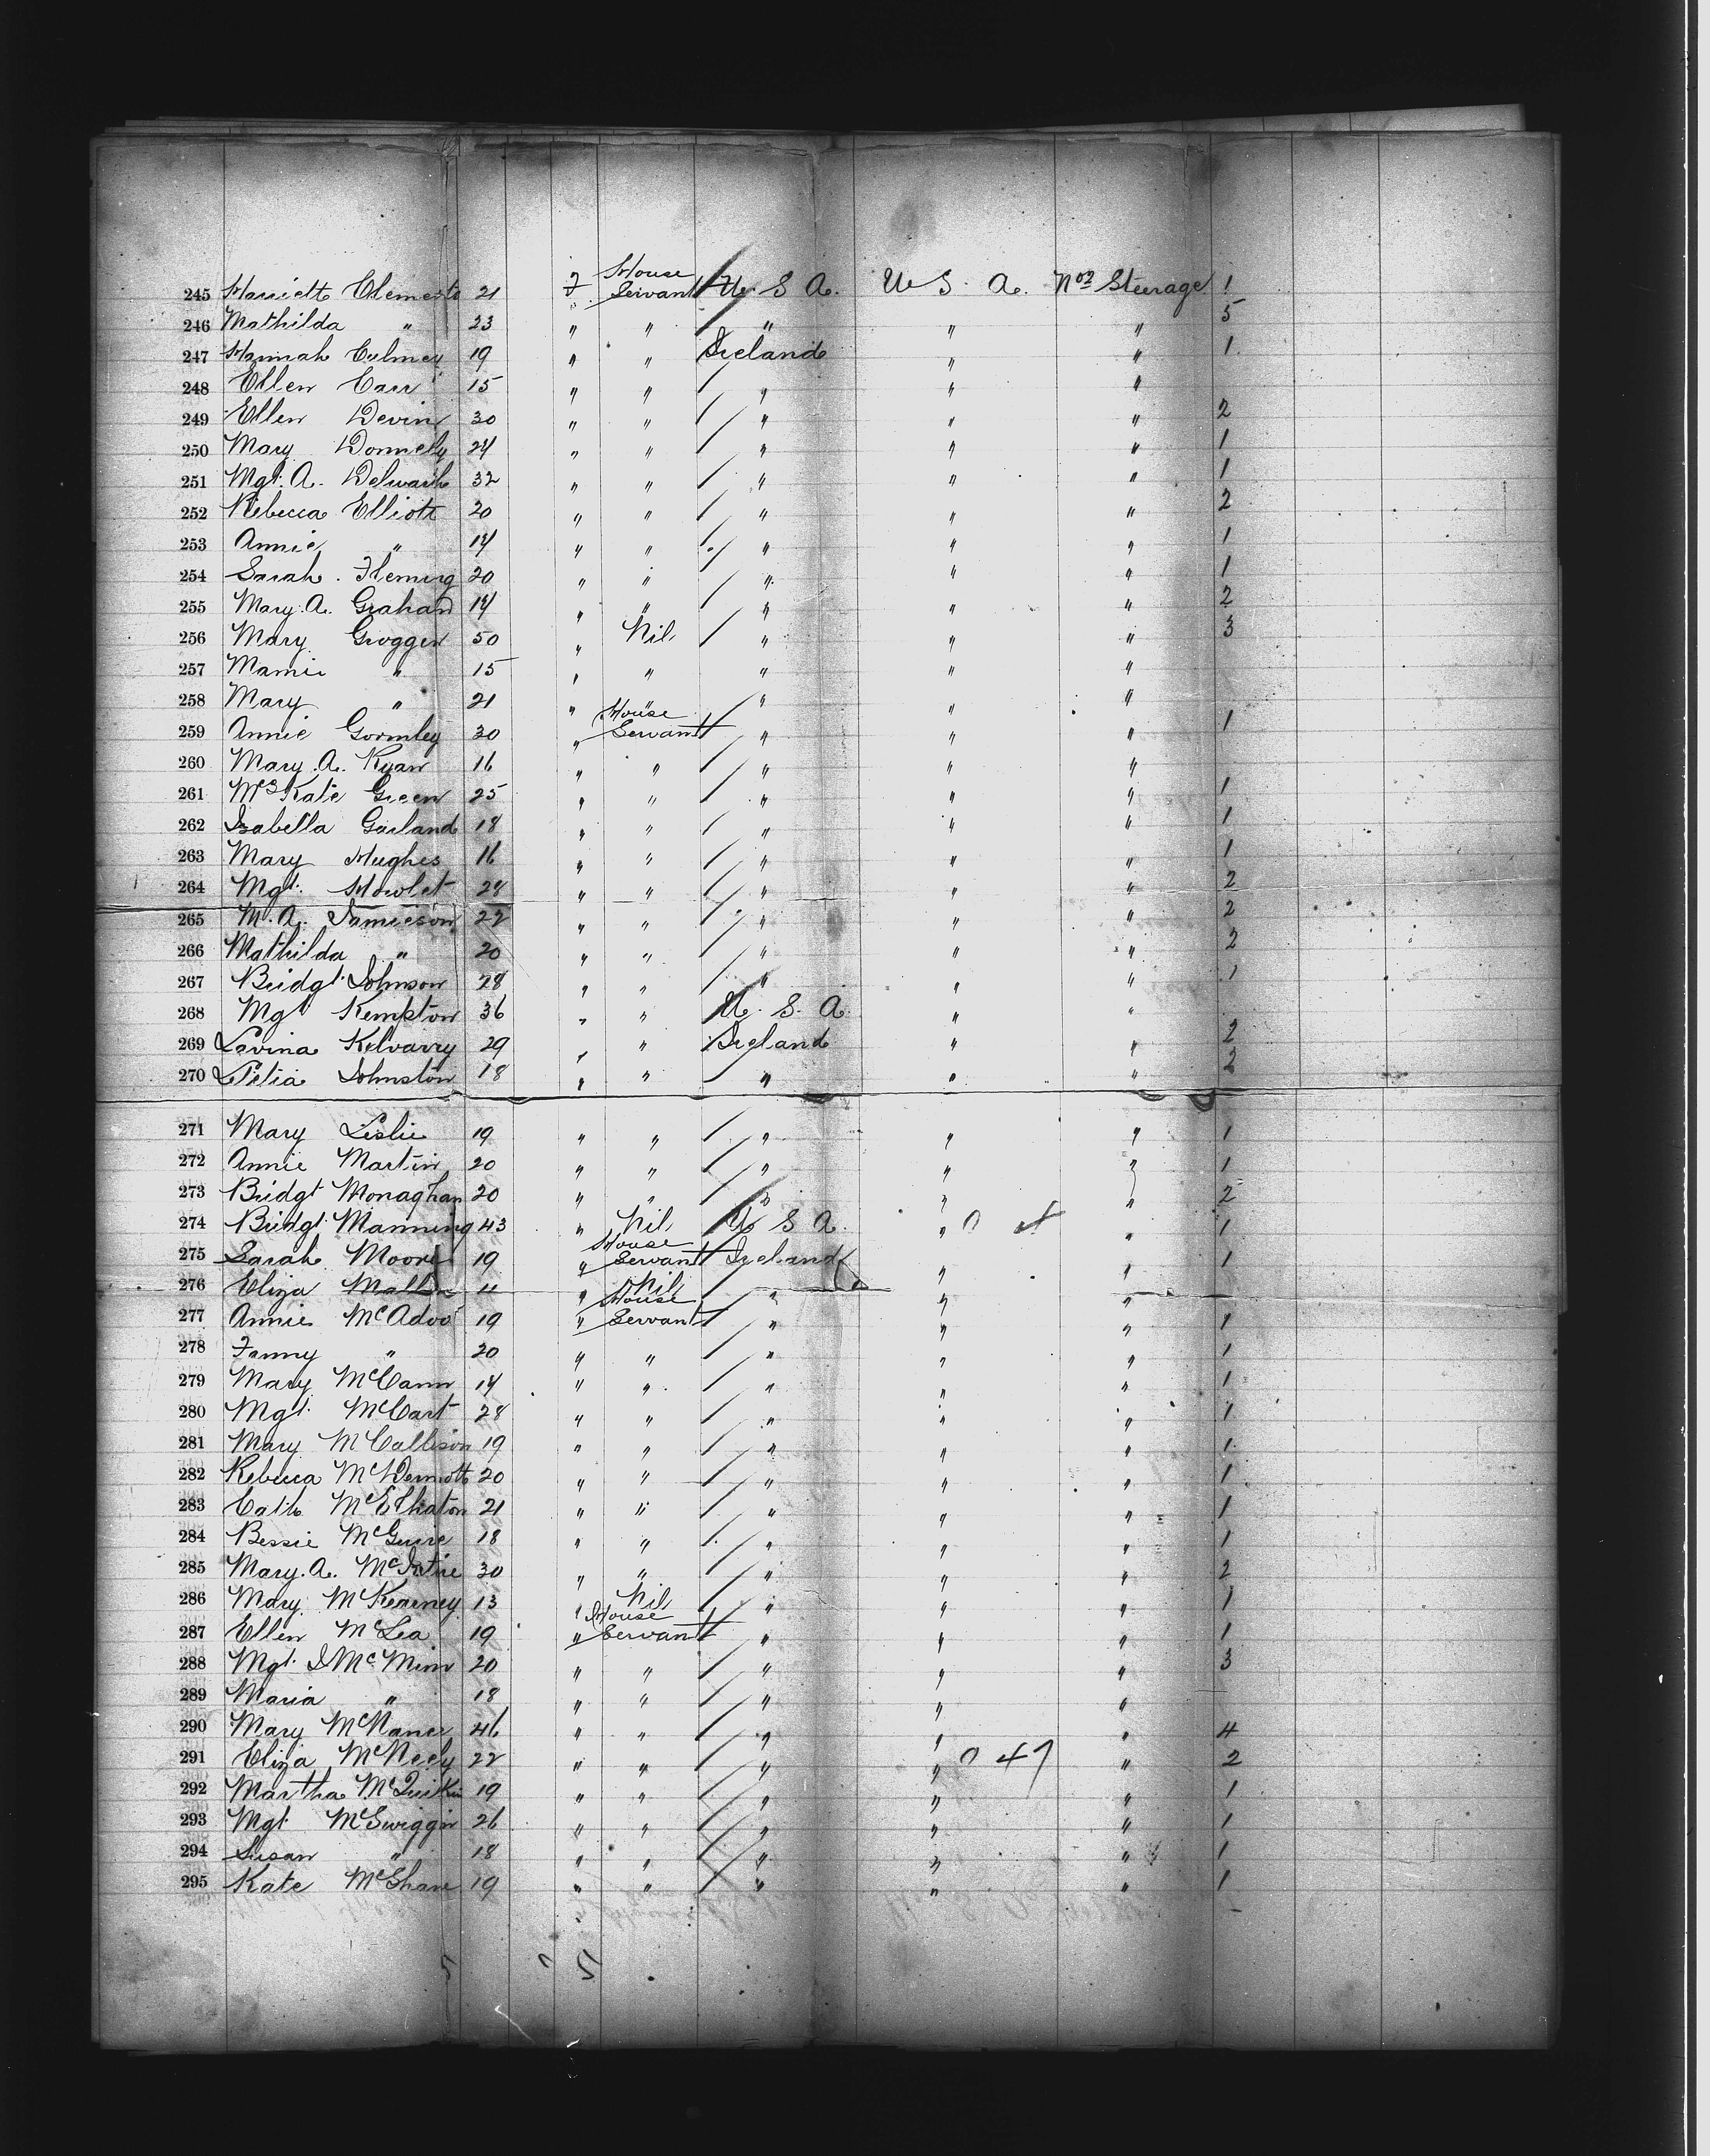 245 Harriett Clements 21 F House Servant U. S. A. U S. A. Nor Steerage 1
246 Mathilda " 23 " " " " " 5
247 Hannah Culmey 19 " " Ireland " " 1
248 Ellen Carr 15 " " " " "
249 Ellen Devin 30 " " " " " 2
250 Mary Donnelly 24 " " " " " 1
251 Mgt. A. 32 " " " " " 1
252 Rebecca Elliott 20 " " " " " 2
253 Annie " 14 " " " " " 1
254 Sarah Fleming 20 " " " " " 1
255 Mary. A. Graham 14 " " " " " 2
256 Mary Groggen 50 " Nil " " " 3
257 Mamie " 15 " " " " "
258 Mary " 21 " " " " "
259 Annie Gormley 30 " House Servant " " " 1
260 Mary. A. Ryan 16 " " " " "
261 Mrs Kate Green 25 " " " " " 1
262 Isabella Garland 18 " " " " " 1
263 Mary Hughes 16 " " " " " 1
264 Mgt. Howlet 28 " " " " " 2
265 M. A. Jamieson 22 " " " " " 2
266 Mathilda " 20 " " " " " 2
267 Bridgt. Johnson 28 " " " " " 1
268 Mgt Kempton 36 " " U. S. A. " "
269 Lavina Kelvarry 29 " " Ireland " " 2
270 Letitia Johnston 18 " " " " " 2
271 Mary Leslie 19 " " " " " 1
272 Annie Martin 20 " " " " " 1
273 Bridgt Monaghan 20 " " " " " 2
274 Bridgt. Manning 43 " Nil U S A. " " 1
275 Sarah Moore 19 " House Servant Ireland " " 1
276 Eliza 11 " Nil " " "
277 Annie McAdoo 19 " House Servant " " " 1
278 Fanny " 20 " " " " " 1
279 Mary McCann 14 " " " " " 1
280 Mgt. McCart 28 " " " " " 1
281 Mary McCallison 19 " " " " " 1
282 Rebecca McDermott 20 " " " " " 1
283 Cath McElhaton 21 " " " " " 1
284 Bessie McGuire 18 " " " " " 1
285 Mary. A. McIntire 30 " " " " " 2
286 Mary McKearney 13 " Nil " " " 1
287 Ellen McLea 19 " House Servant " " " 1
288 Mgt. J McMinn 20 " " " " " 3
289 Maria " 18 " " " " "
290 Mary 46 " " " " " 4
291 Eliza McNeely 22 " " " " 0 47 " 2
292 Martha McQuiskin 19 " " " " " 1
293 Mgt. McSwiggin 26 " " " " " 1
294 Susan " 18 " " " " " 1
295 Kate McShane 19 " " " " " 1